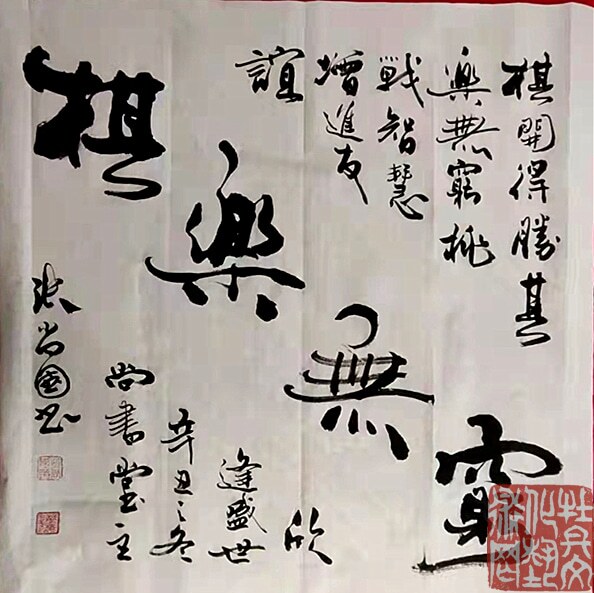 棋樂無窮
棋開得勝其
樂無窮挑
戰智慧
增進友
誼
欣
逢盛世
辛丑之冬
尚書堂主
張尚國书